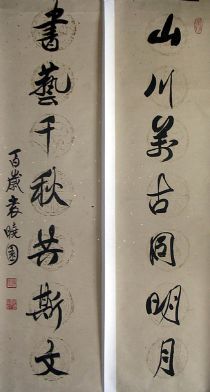 山川万古同明月
書藝千秋共斯文
百歲袁曉園